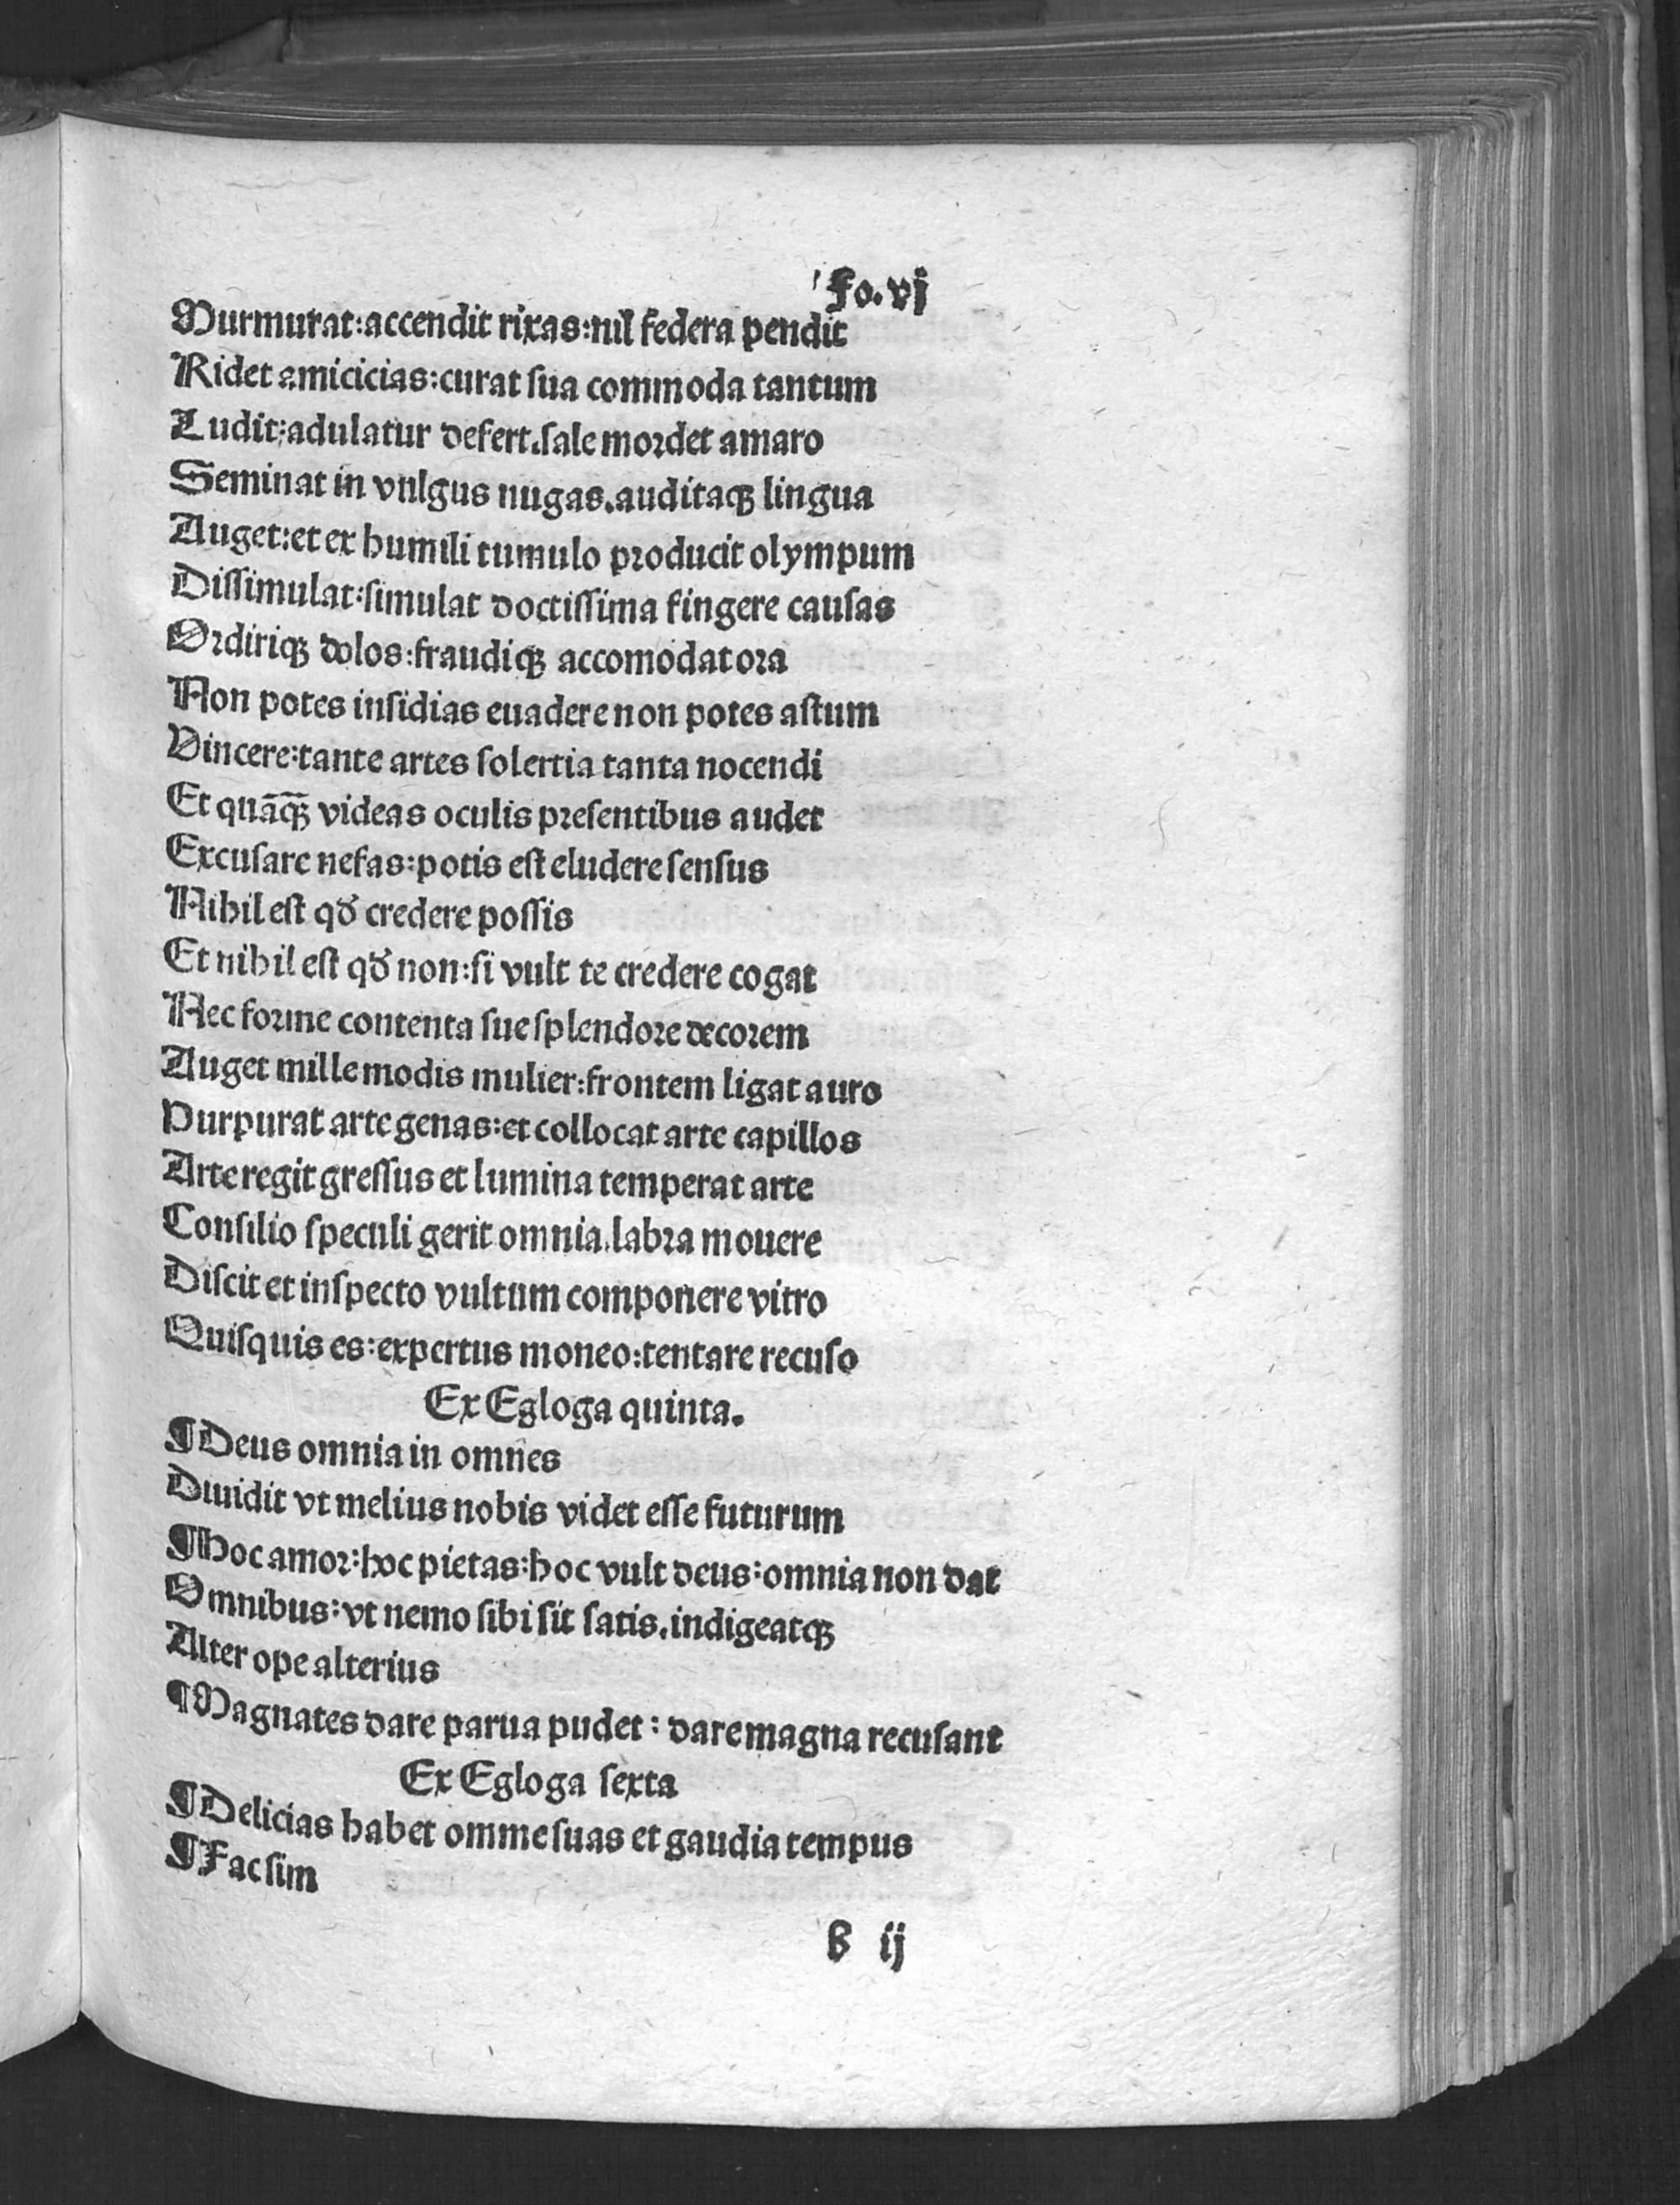 Fo.vj
Murmurat:accendit rixas:nil federa pendit
Ridet amicicias:curat sua commoda tantum
Ludit:adulatur defert.sale mordet amaro
Seminat in vulgus nugas.auditaqꝫ lingua
Auget:et ex humili tumulo producit olympum
Dissimulat:simulat doctissima fingere causas
Ordiriqꝫ dolos:fraudiqꝫ accomodat ora
Non potes insidias euadere non potes astum
Vincere:tante artes solertia tanta nocendi
Et quāqꝫ̄ videas oculis presentibus audet
Excusare nefas:potis est eludere sensus
Nihil est qđ credere possis
Et nihil est qđ non:si vult te credere cogat
Nec forme contenta sue splendore decorem
Auget mille modis mulier:frontem ligat auro
Purpurat arte genas:et collocat arte capillos
Arte regit gressus et lumina temperat arte
Consilio speculi gerit omnia.labra mouere
Discit et inspecto vultum componere vitro
Quisquis es:expertus moneo:tentare recuso
Ex Egloga quinta.
¶Deus omnia in omnes
Diuidit vt melius nobis videt esse futurum
¶Hoc amor:hoc pietas:hoc vult deus:omnia non dat
Omnibus:vt nemo sibi sit satis.indigeatqꝫ
Alter ope alterius
¶Magnates dare parua pudet:dare magna recusant
Ex Egloga sexta
¶Delicias habet omme suas et gaudia tempus
¶Fac sim
B ij